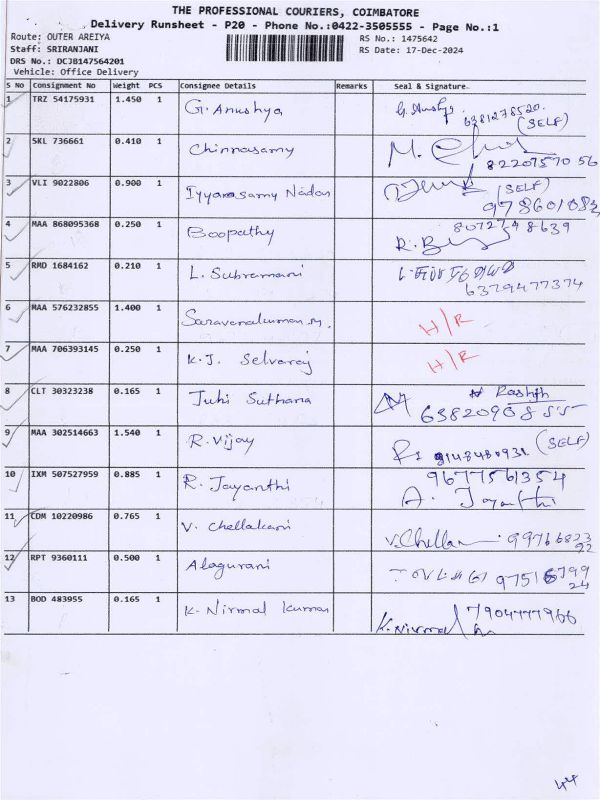 THE PROFESSIONAL COURIERS, COIMBATORE
Delivery Runsheet - P20 - Phone No.:0422-3505555 - Page No.:1
Route: OUTER AREIYA
RS No.: 1475642
Staff: SRIRANJANI
RS Date: 17-Dec-2024
DRS No.: DCJB147564201
Vehicle: Office Delivery
S No Consignment No Weight PCS Consignee Details Remarks Seal & Signature
1 TRZ 54175931 1.450 1 G. Anushya 6381278520. (SELF)
2 SKL 736661 0.410 1 Chinnasamy 8220757056
3 VLI 9022806 0.900 1 Iyyarasamy Nadar (SELF)
4 MAA 868095368 0.250 1 Boopathy
5 RMD 1684162 0.210 1 L. Subramani 6379477374
6 MAA 576232855 1.400 1 Saravanakumar M. H/R
7 MAA 706393145 0.250 1 K.J. Selvaraj H/R
8 CLT 30323238 0.165 1 Juhi Suthana 6382090855
9 MAA 302514663 1.540 1 R. Vijay 9148480931. (SELF)
10 IXM 507527959 0.885 1 R. Jayanthi 9677561354
A. Jayanthi
11 CDM 10220986 0.765 1 V. Chellakani V. Chella
12 RPT 9360111 0.500 1 Alagurani
13 BOD 483955 0.165 1 K. Nirmal Kumar K. Nirmal 7904777966
44